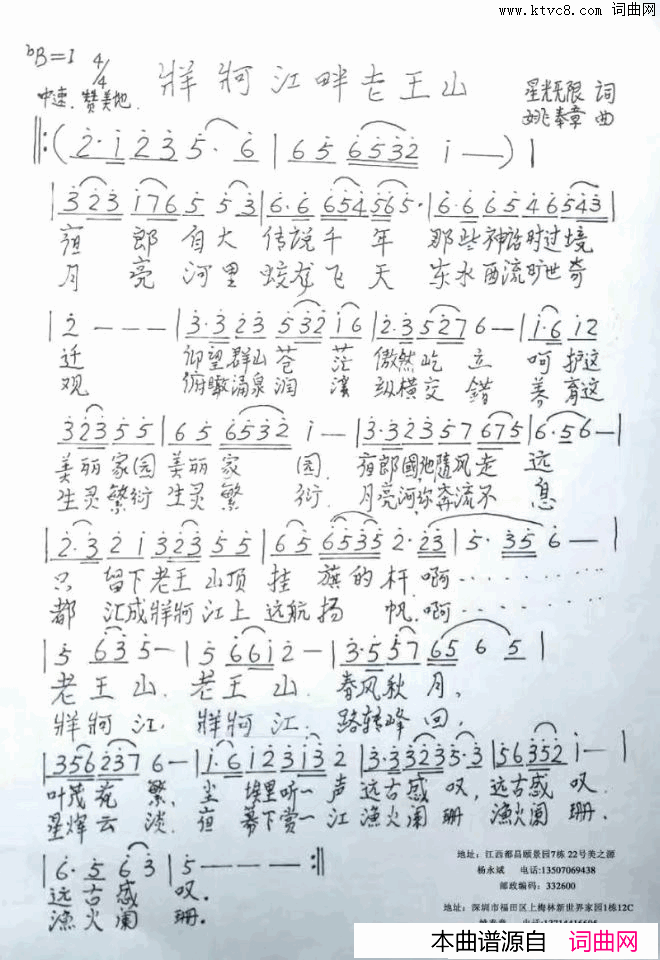 www.ktvc8.com 词曲网
bB=1 4/4
牂牁江畔老王山
中速.赞美地.
星光无限 词
姚奉章 曲
‖:(2·1 2 3 5· 6 | 6 5 6532 1 —)|
|323 176 5 5 3 |6·6 654 565· |6·6 654 6543|
夜郎自大 传说千年 那些神话时过境
月亮河里 蛟龙飞天 东水西流旷世奇
|2 — — — |3·3 23 532 16 |2·3 527 6 — |1·6 12
迁 仰望群山苍茫 傲然屹立 呵护这
观 俯瞰涌泉润溪 纵横交错 养育这
323 5 5 |6 5 6532 1 — |3·3 2357 675 |6·56 —|
美丽家园 美丽家园. 夜郎國池随风走远
生灵繁衍 生灵繁衍. 月亮河弥奔流不息
|2·3 2 1 323 5 5 |6 5 6535 2·23 |5·35 6 —|
只留下老王山顶挂旗的杆啊
都汇成牂牁江上远航扬帆.啊
|5 63 5 — |5 661 2 — |3·5 57 65 6 5 |
老王山. 老王山. 春风秋月,
牂牁江. 牂牁江. 路转峰回.
|356 237 6 — |1·6 123 13 2 |3·3 323 5·3 |56 352 1 — |
叶茂花繁, 尘埃里听一声远古感叹,远古感叹.
星烽云淡. 夜幕下赏一江渔火阑珊 渔火阑珊.
|6·5 6 3 |5 — — — :‖
远古感叹.
渔火阑珊.
地址:江西都昌颐景园7栋22号美之源
杨永斌 电话:13507069438
邮政编码:332600
地址:深圳市福田区上梅林新世界家园1栋12C
本曲谱源自 词曲网